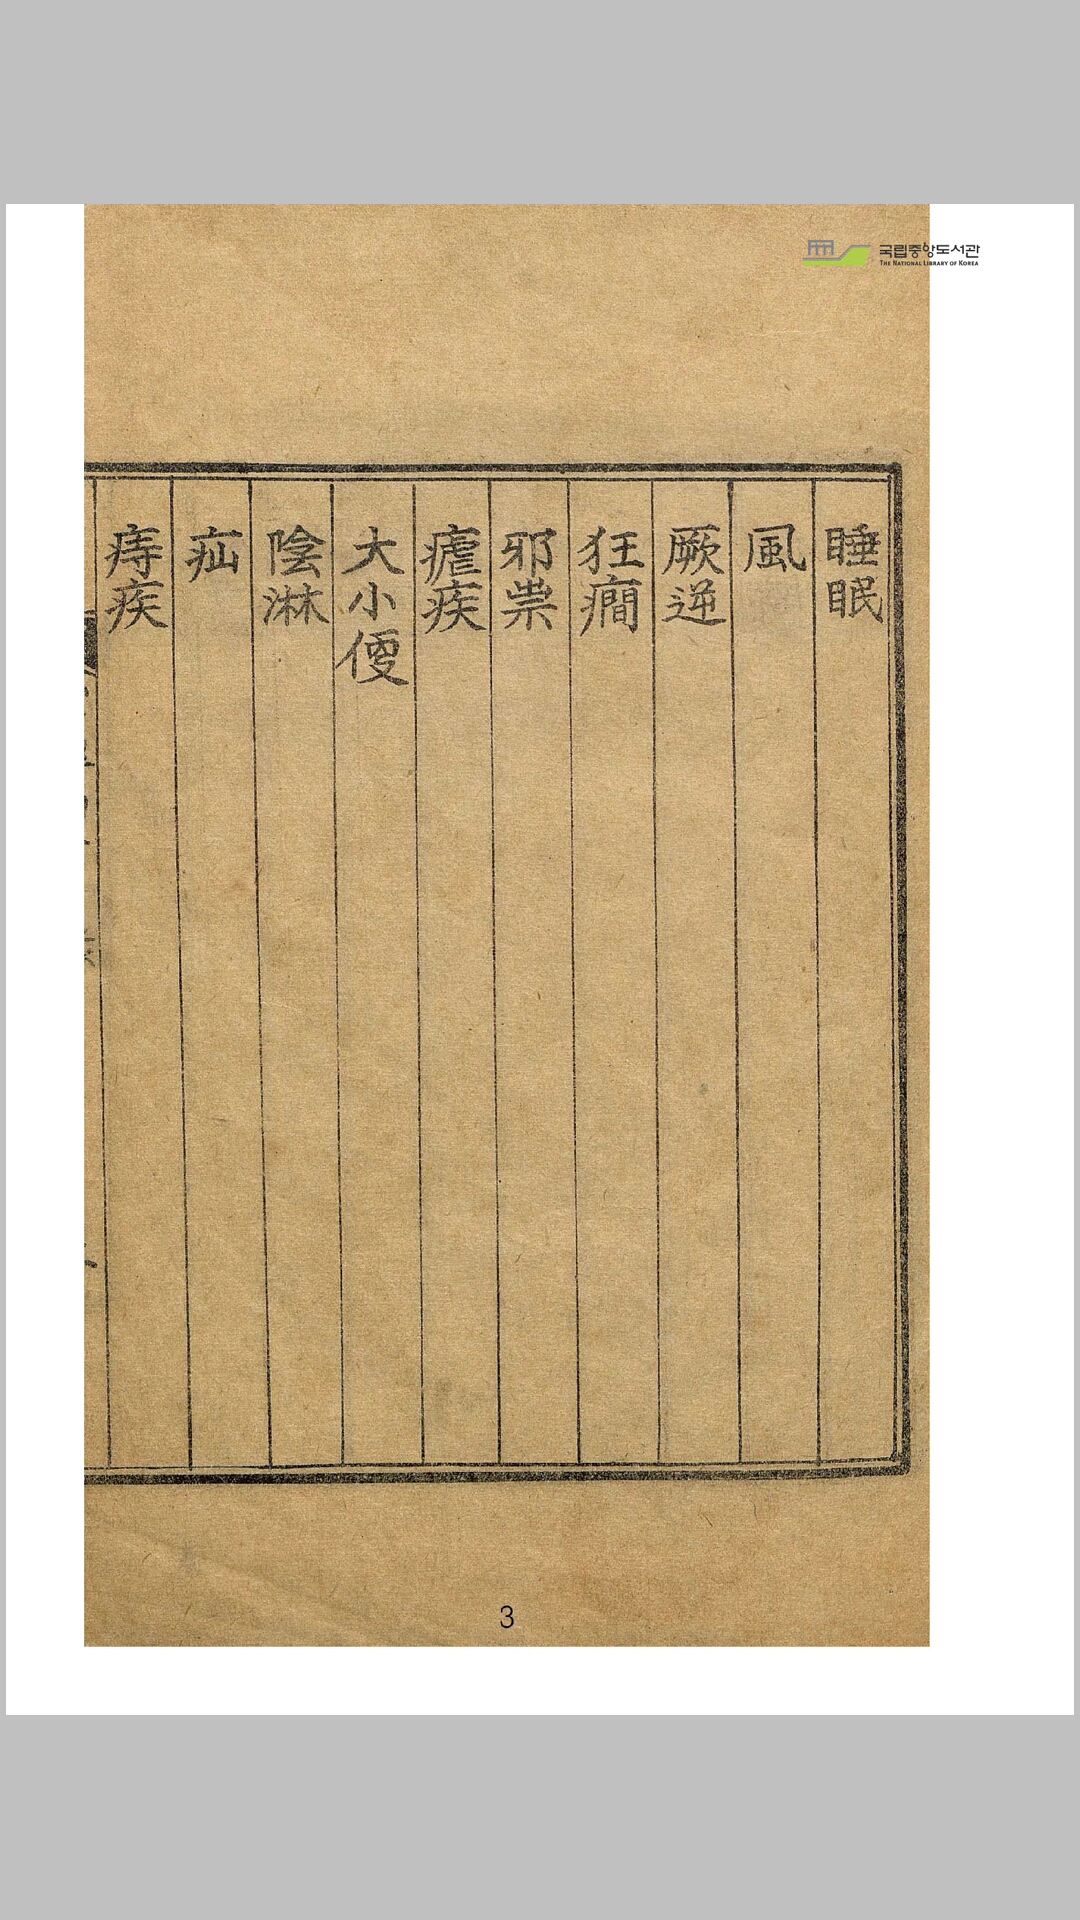 국립중앙도서관
THE NATIONAL LIBRARY OF KOREA
睡眠
風
厥逆
狂癎
邪祟
瘧疾
大小便
陰淋
疝
痔疾
3